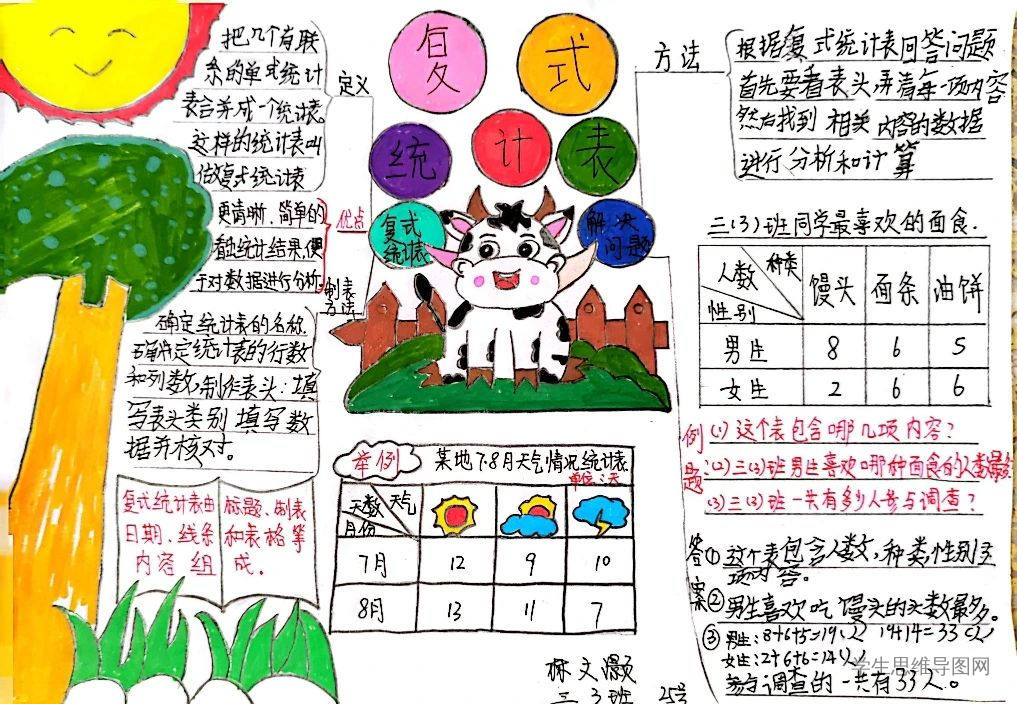 复式
统计表
复式
统计表
解决
问题
定义
把几个有联
系的单式统计
表合并成一个统计表。
这样的统计表叫
做复式统计表
优点
更清晰、简单的
看出统计结果,便
于对数据进行分析。
制表
方法
确定统计表的名称.
确定统计表的行数
和列数,制作表头:填
写表头类别 填写数
据并核对。
复式统计表由
日期、线条
内容 组
标题、制表
和表格等
成.
举例
某地7.8月天气情况统计表
单位:天
天数 天气
月份
7月 12 9 10
8月 13 11 7
方法
根据复式统计表回答问题
首先要看表头,弄清每一项内容
然后找到 相关 内容的数据
进行分析和计算
三(3)班同学最喜欢的面食.
人数 种类 馒头 面条 油饼
性别
男生 8 6 5
女生 2 6 6
例题:
(1)这个表包含哪几项内容?
(2)三(3)班男生喜欢哪种面食的人数最多
(3)三(3)班一共有多少人参与调查?
答案
① 这个表包含人数,种类,性别三
项内容。
② 男生喜欢吃 馒头的人数最多。
③ 男生:8+6+5=19(人) 19+14=33(人)
女生:2+6+6=14(人)
参与调查的一共有33人。
三 3班 25号
学生思维导图网